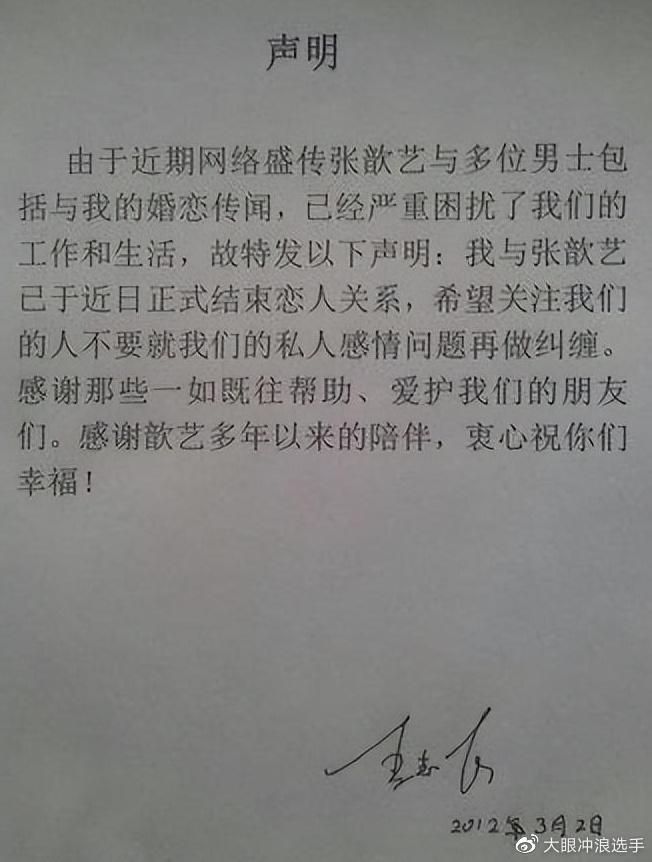 声明
由于近期网络盛传张歆艺与多位男士包
括与我的婚恋传闻，已经严重困扰了我们的
工作和生活，故特发以下声明：我与张歆艺
已于近日正式结束恋人关系，希望关注我们
的人不要就我们的私人感情问题再做纠缠。
感谢那些一如既往帮助、爱护我们的朋友
们。感谢歆艺多年以来的陪伴，衷心祝你们
幸福！
王志
2012年3月2日
大眼冲浪选手